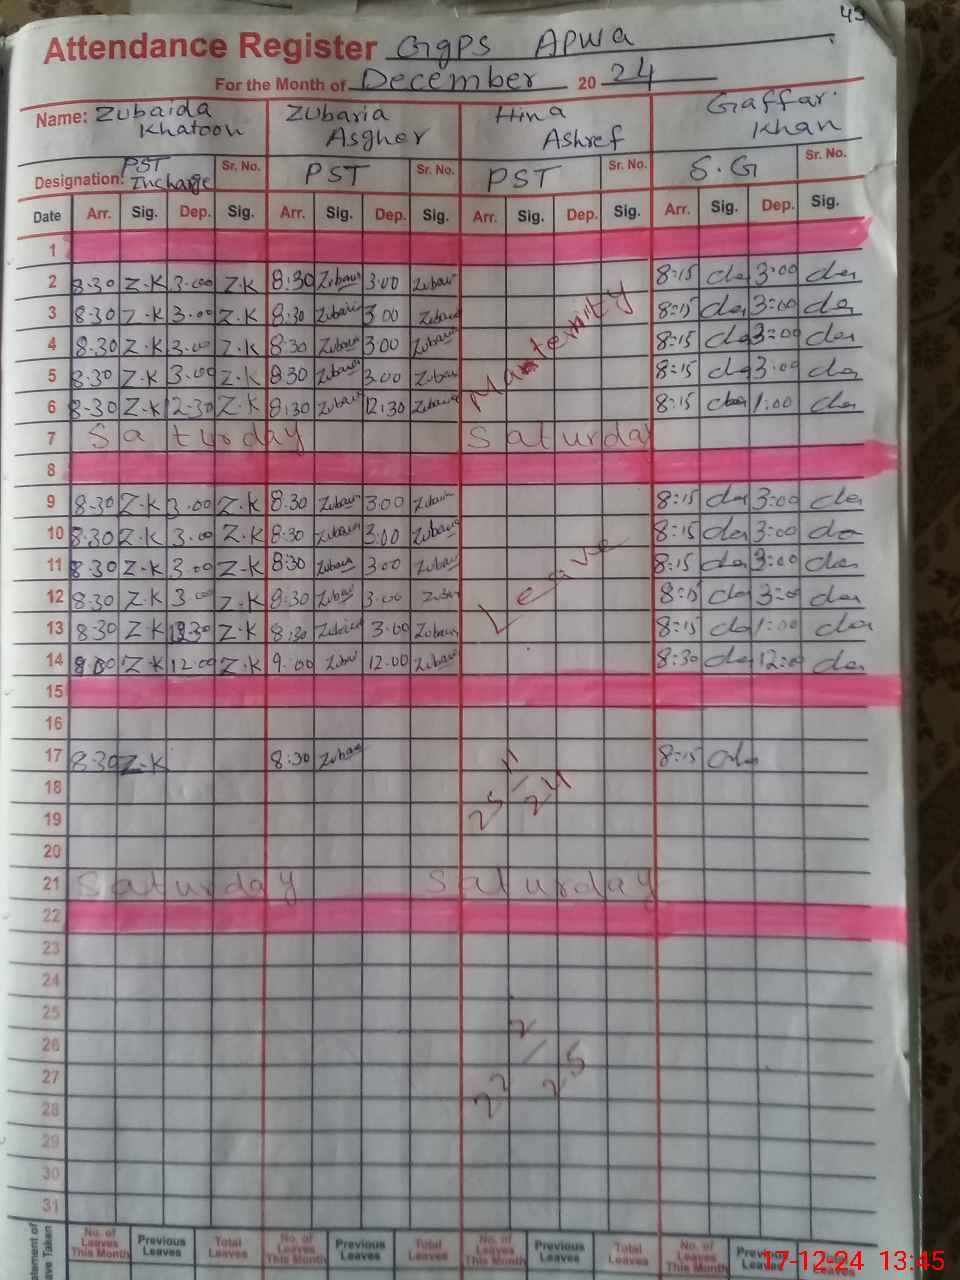 43
Attendance Register GgPS APWA
For the Month of December 20 24
Name: Zubaida Khatoon Zubaria Asgher Hina Ashref Gaffar Khan
Designation: PST Incharge Sr. No. PST Sr. No. PST Sr. No. S.G Sr. No.
Date Arr. Sig. Dep. Sig. Arr. Sig. Dep. Sig. Arr. Sig. Dep. Sig. Arr. Sig. Dep. Sig.
1
2 8-30 Z-K 3-00 Z-K 8:30 3:00 8:15 3:00
3 8-30 Z-K 3-00 Z-K 8:30 3:00 8:15 3:00
4 8-30 Z-K 3-00 Z-K 8:30 3:00 8:15 3:00
5 8-30 Z-K 3-00 Z-K 8:30 3:00 8:15 3:00
6 8-30 Z-K 12-30 Z-K 8:30 12:30 8:15 1:00
Maternity
7 Saturday Saturday
8
9 8-30 Z-K 3-00 Z-K 8:30 3:00 8:15 3:00
10 8-30 Z-K 3-00 Z-K 8:30 3:00 8:15 3:00
11 8-30 Z-K 3-00 Z-K 8:30 3:00 8:15 3:00
12 8-30 Z-K 3-00 Z-K 8:30 3:00 8:15 3:00
Leave
13 8-30 Z-K Z-K 8:30 3:00 8:15 1:00
14 8:00 Z-K 12:00 Z-K 9:00 12:00 8:30 12:00
15
16
17 8-30 Z-K 8:30 8:15
25 11/24
18
19
20
21 Saturday Saturday
22
23
24
25
26
22 2/25
27
28
29
30
31
No. of Leaves This Month Previous Leaves Total Leaves No. of Leaves This Month Previous Leaves Total Leaves No. of Leaves This Month Previous Leaves Total Leaves No. of Leaves This Month
17-12-24 13:45